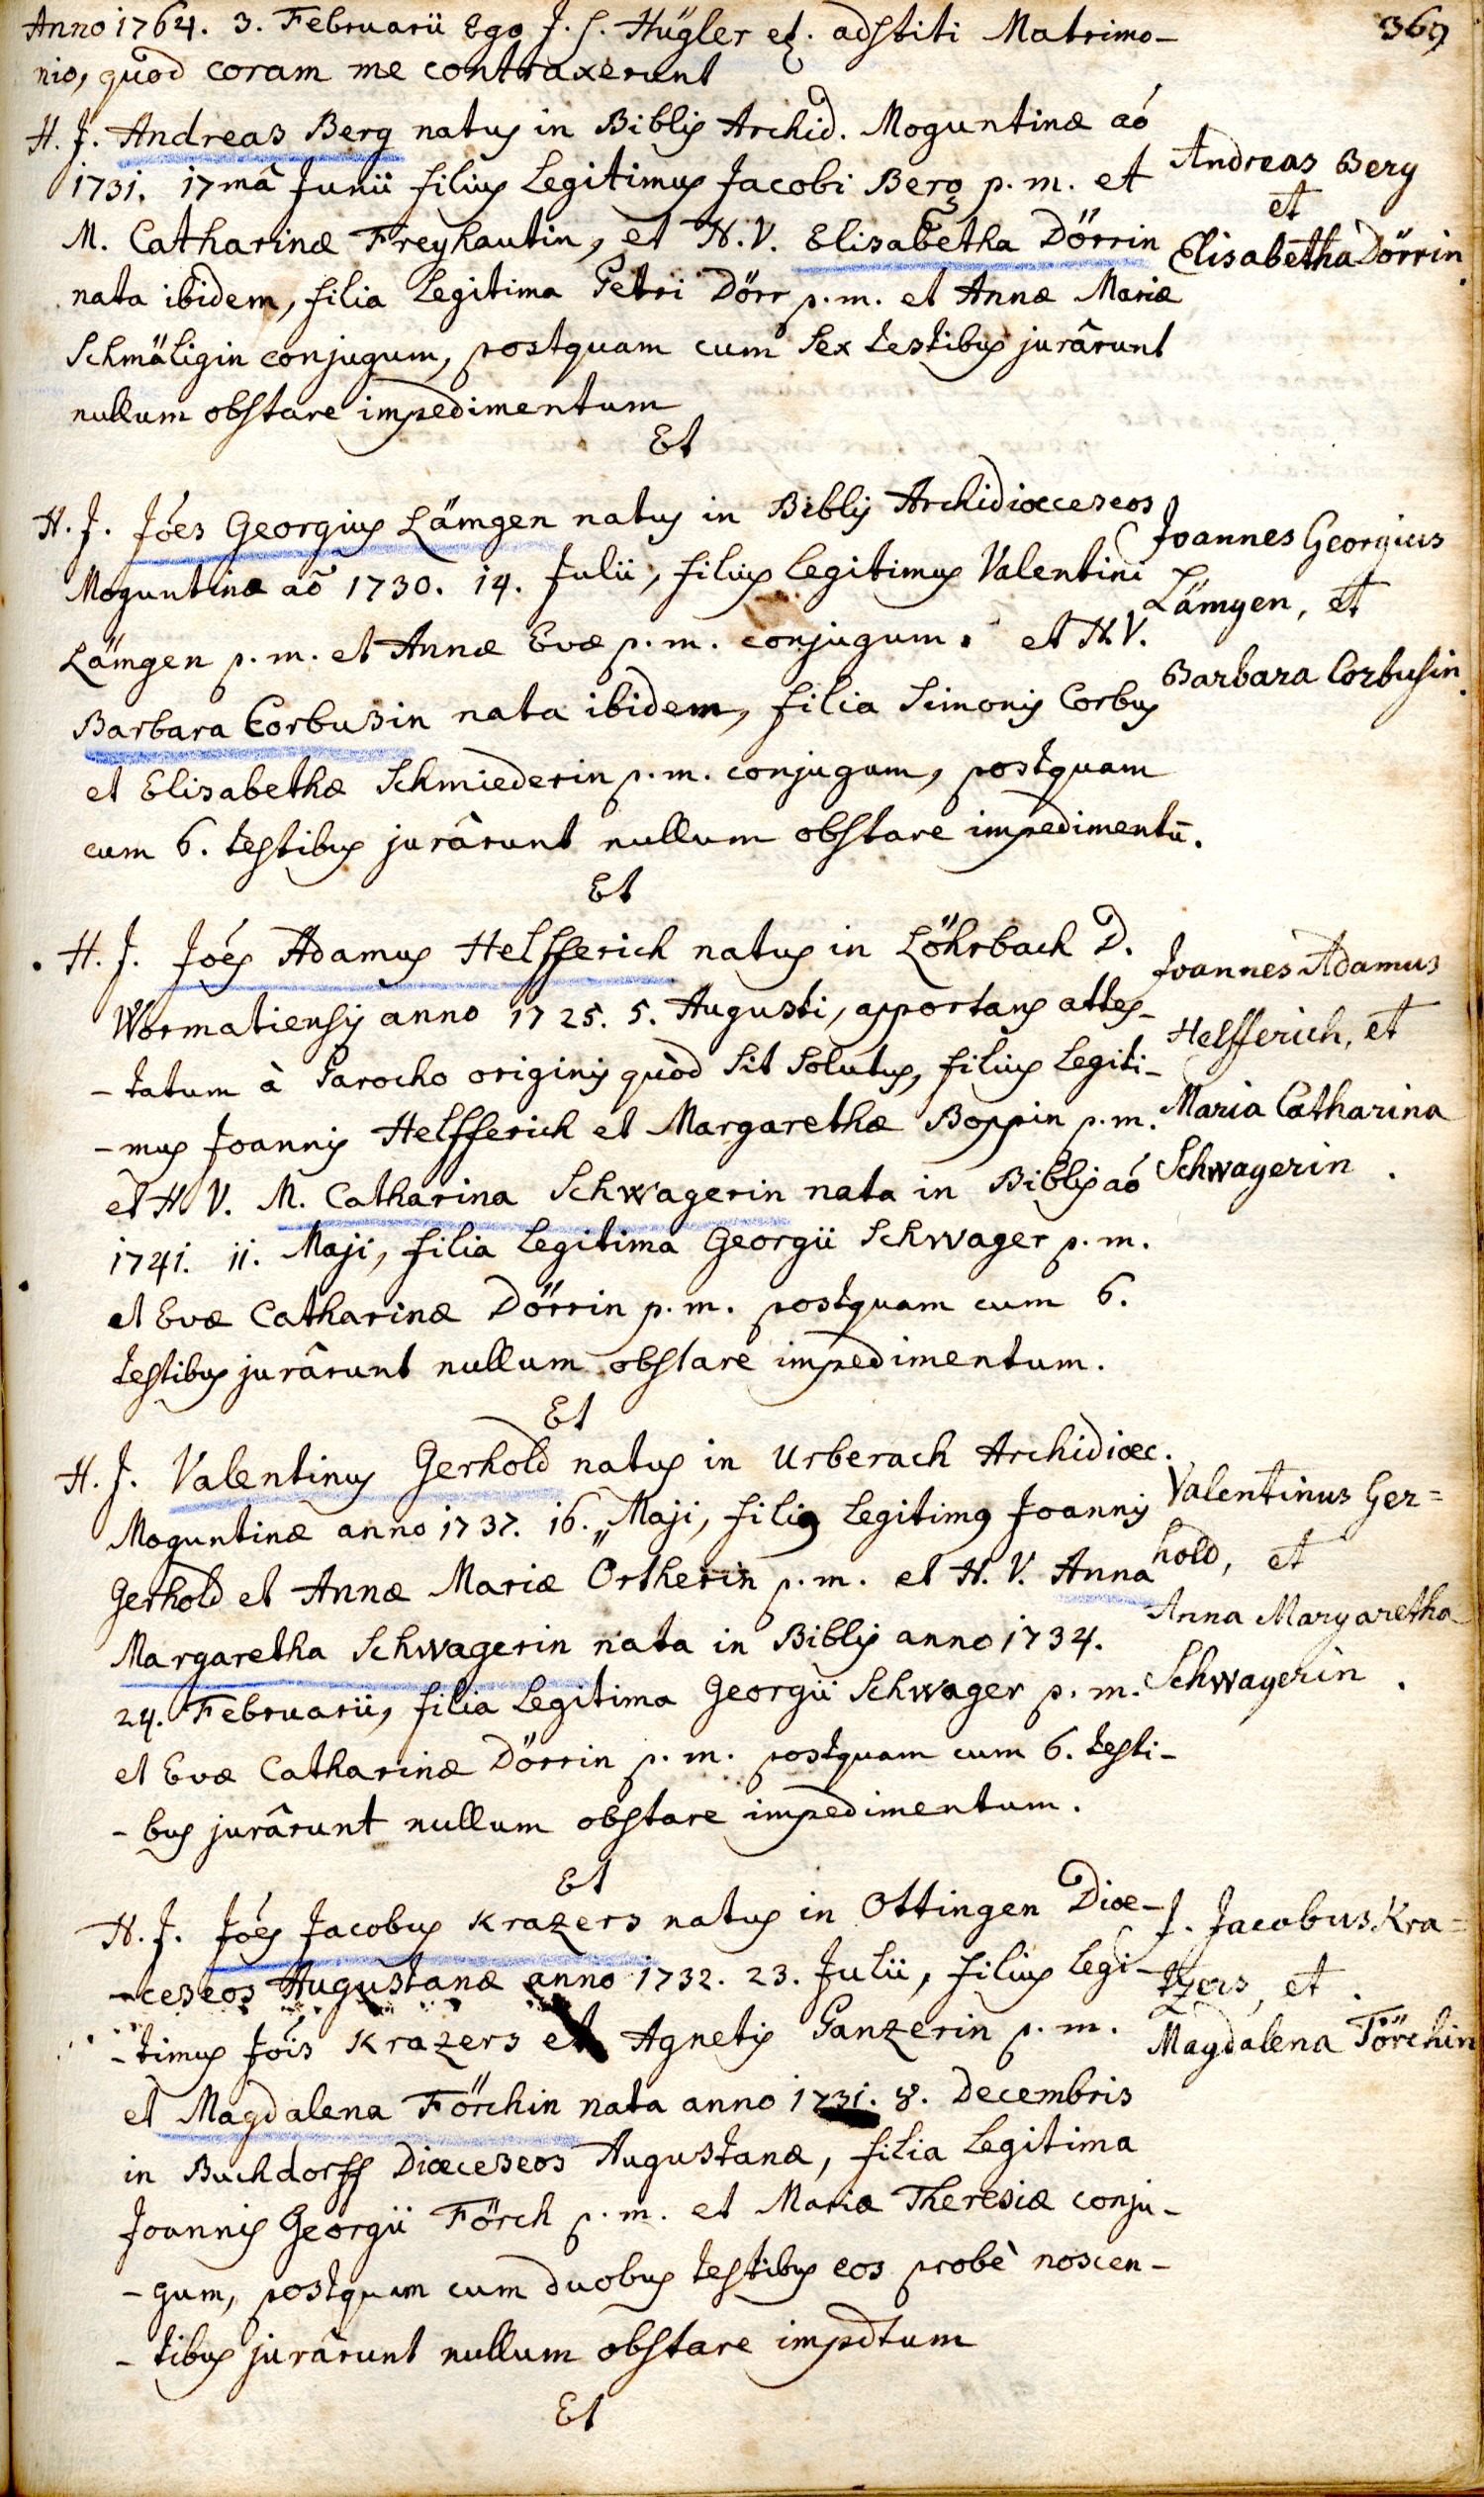 369
Anno 1764. 3. Februarii Ego J. S. Hügler etc. adstiti Matrimo-
nio, quod coram me contraxerunt
H. J. Andreas Berg natus in Biblis Archid. Moguntinæ aó
1731. 17mâ Junii filius Legitimus Jacobi Berg p. m. et
M. Catharinæ Freyhautin, et H. V. Elisabetha Dörrin
nata ibidem, filia Legitima Petri Dörr p. m. et Annæ Mariæ
Schmäligin conjugum, postquam cum Sex testibus jurârunt
nullum obstare impedimentum
Andreas Berg
et
Elisabetha Dörrin.
Et
H. J. Jóes Georgius Lämgen natus in Biblis Archidiœceseos
Moguntinæ aõ 1730. 14. Julii, filius legitimus Valentini
Lämgen p. m. et Annæ Evæ p. m. conjugum. et H. V.
Barbara Corbusin nata ibidem, filia Simonis Corbus
et Elisabethæ Schmiederin p. m. conjugum, postquam
cum 6. testibus jurârunt nullum obstare impedimentū.
Joannes Georgius
Lämgen, et
Barbara Corbusin.
Et
H. J. Jóes Adamus Helfferich natus in Löhrbach D.
Wormatiensis anno 1725. 5. Augusti, apportans attes-
-tatum à Parocho originis quòd Sit Solutus, filius Legiti-
-mus Joannis Helfferich et Margarethæ Boppin p. m.
et H V. M. Catharina Schwagerin nata in Biblis aó
1741. 11. Maji, filia Legitima Georgii Schwager p. m.
et Evæ Catharinæ Dörrin p. m. postquam cum 6.
testibus jurârunt nullum obstare impedimentum.
Joannes Adamus
Helfferich, et
Maria Catharina
Schwagerin.
Et
H. J. Valentinus Gerhold natus in Urberach Archidiœc.
Moguntinæ anno 1737. 16. Maji, filiꝰ Legitimꝰ Joannis
Gerhold et Annæ Mariæ Örtherin p. m. et H. V. Anna
Margaretha Schwagerin nata in Biblis anno 1734.
24. Februarii, filia Legitima Georgii Schwager p. m.
et Evæ Catharinæ Dörrin p. m. postquam cum 6. testi-
-bus jurârunt nullum obstare impedimentum.
Valentinus Ger=
hold, et
Anna Margaretha
Schwagerin.
Et
H. J. Jóes Jacobus Krazers natus in Ottingen Diœ-
-ceseos Augustanæ anno 1732. 23. Julii, filius Legi-
-timus Jóis Krazers et Agnetis Ganzerin p. m.
et Magdalena Förchin nata anno 1731. 8. Decembris
in Buchdorff Diœceseos Augustanæ, filia Legitima
Joannis Georgii Förch p. m. et Mariæ Theresiæ conju-
-gum, postquam cum duobus testibus eos probè noscen-
-tibus jurârunt nullum obstare impdtum
J. Jacobus Kra=
tzers, et
Magdalena Förchin
Et